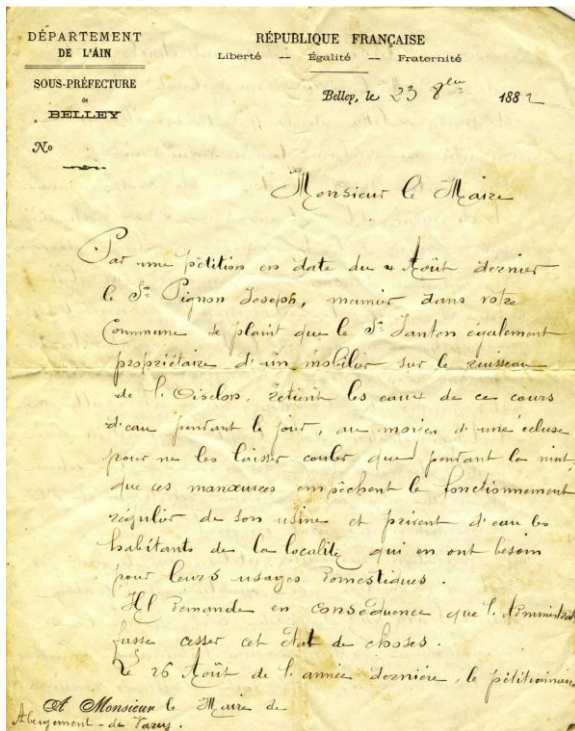 DÉPARTEMENT
DE L'AIN
SOUS-PRÉFECTURE
de
BELLEY
No
RÉPUBLIQUE FRANÇAISE
Liberté — Égalité — Fraternité
Belley, le 23 8bre 1882
Monsieur le Maire
Par une pétition en date du 4 Août dernier
le Sr Pignon Joseph, meunier dans votre
Commune se plaint que le Sr Tanton également
propriétaire d'un mobilier sur le ruisseau
de l'Oiselon, retient les eaux de ce cours
d'eau pendant le jour, au moyen d'une écluse
pour ne les laisser couler que pendant la nuit,
que ces manœuvres empêchent le fonctionnement
régulier de son usine et privent d'eau les
habitants de la localité qui en ont besoin
pour leurs usages domestiques.
Il demande en conséquence que l'Administrat
fasse cesser cet état de choses.
Le 26 Août de l'année dernière, le pétitionnaire
A Monsieur le Maire de
Abergement-de-Varey.